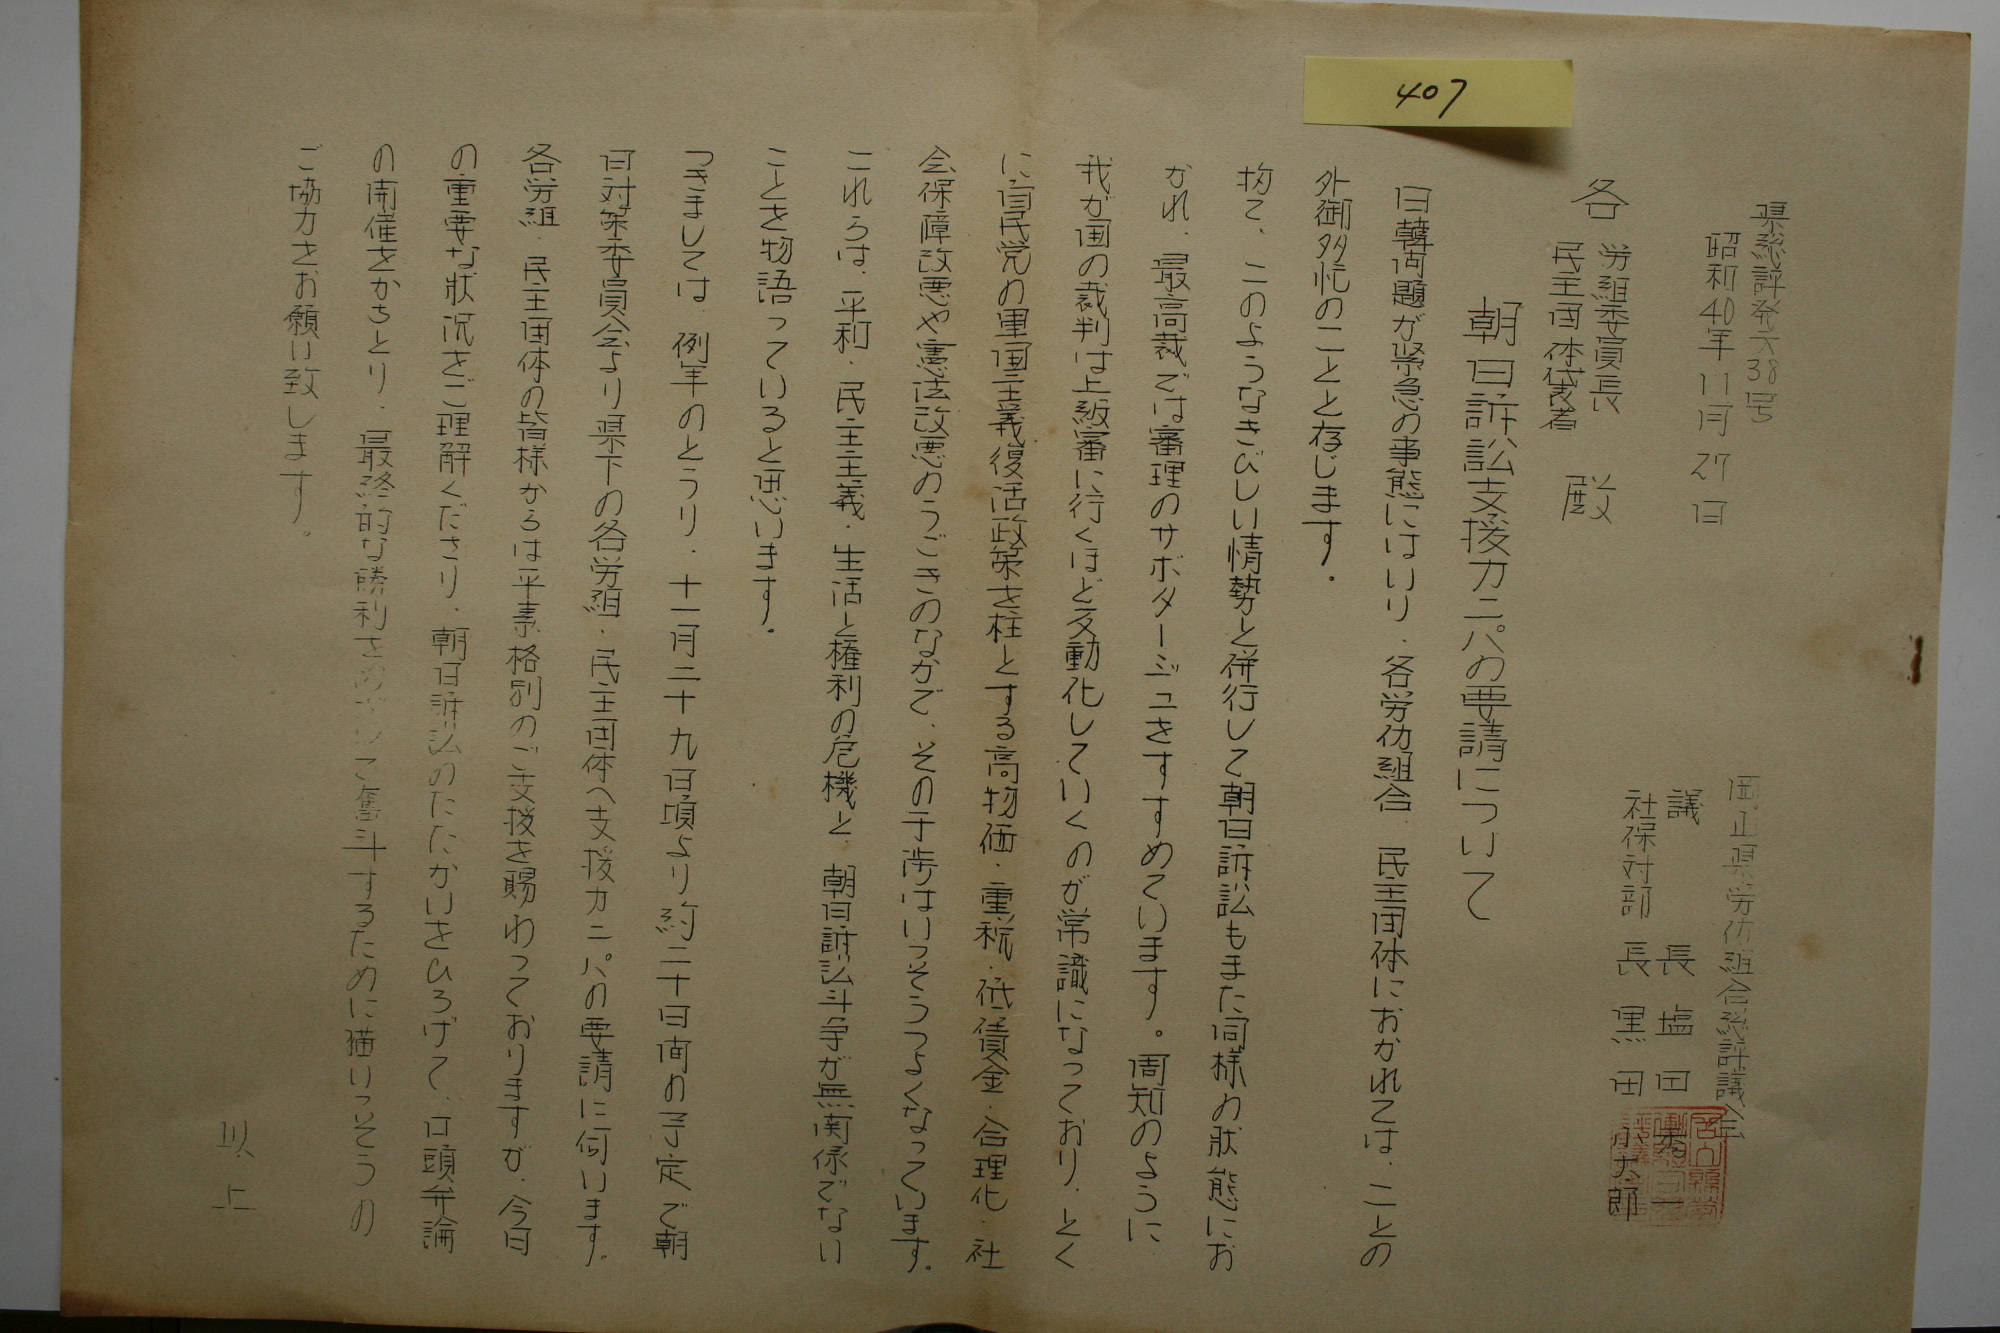 407
県総評発六38号
昭和40年11月27日
岡山県労仂組合総評議会
議長 塩田
社保対部長 黒田小太郎
各
労組委員長
民主団体代表者
殿
朝日訴訟支援カニパの要請について
日韓向題が緊急の事態にはいり、各労仂組合、民主団体におかれては、ことの
外御多忙のことと存じます。
扨て、このようなきびしい情勢と併行して朝日訴訟もまた同様の状態にお
かれ、最高裁では審理のサボタージュをすすめています。周知のように
我が国の裁判は上級審に行くほど反動化していくのが常識になっており、とく
に自民党の軍国主義復活政策を柱とする高物価・重税・低賃金・合理化・社
会保障改悪や憲法改悪のうごきのなかで、その干渉はいっそうつよくなっています。
これらは、平和・民主主義・生活と権利の危機と、朝日訴訟斗争が無関係でない
ことを物語っていると思います。
つきましては、例年のとうり、十一月二十九日頃より約二十日间の予定で朝
日対策委員会より県下の各労組・民主団体へ支援カニパの要請に伺います。
各労組、民主団体の皆様からは平素格別のご支援を賜わっておりますが、今日
の重要な状況をご理解くださり、朝日訴訟のたたかいをひろげて、口頭弁論
の開催をかちとり、最終的な勝利をめざしご奮斗するために猶いっそうの
ご協力をお願い致します。
以上